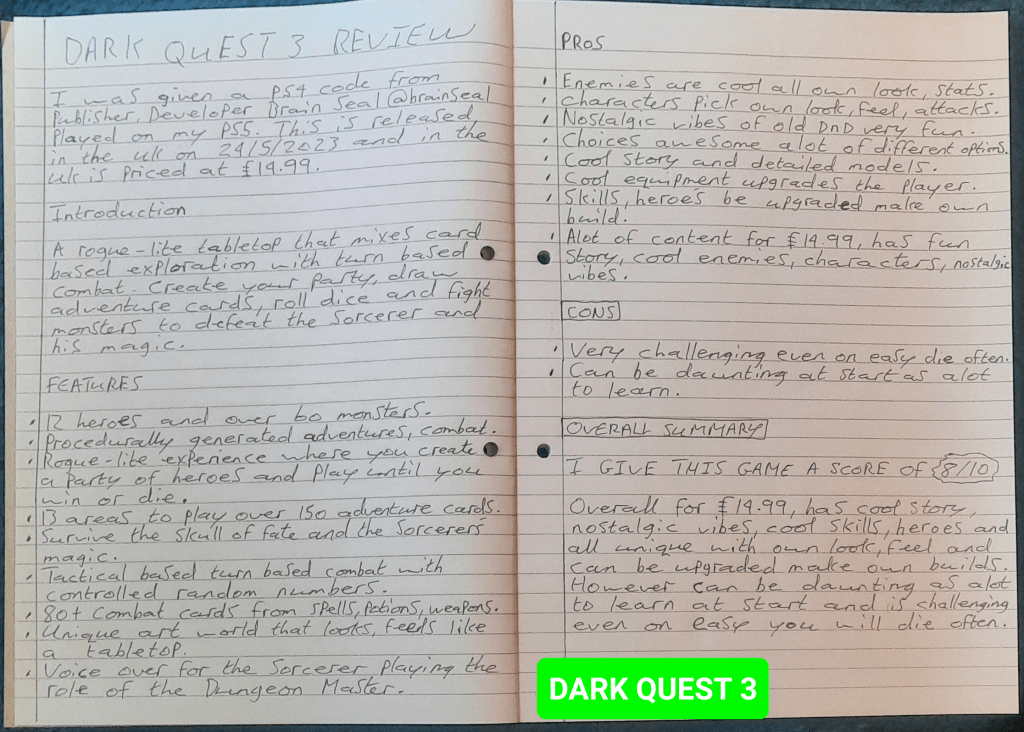 DARK QUEST 3 REVIEW
I was given a PS4 code from
Publisher, Developer Brain Seal @brainSeal
Played on my PS5. This is released
in the uk on 24/5/2023 and in the
uk is priced at £14.99.
Introduction
A rogue-lite tabletop that mixes card
based exploration with turn based
combat. Create your Party, draw
adventure cards, roll dice and fight
monsters to defeat the Sorcerer and
his magic.
FEATURES
• 12 heroes and over 60 monsters.
• Procedurally generated adventures, combat.
• Rogue-lite experience where you create
a Party of heroes and Play until you
win or die.
• 13 areas to Play over 150 adventure cards.
• Survive the Skull of fate and the Sorcerers
magic.
• Tactical based turn based combat with
controlled random numbers.
• 80+ Combat cards from Spells, Potions, weapons.
• Unique art world that looks, feels like
a tabletop.
• Voice over for the Sorcerer Playing the
role of the Dungeon Master.
PROS
• Enemies are cool all own look, Stats.
• Characters Pick own look, feel, attacks.
• Nostalgic vibes of old DnD very fun.
• Choices awesome alot of different options.
• Cool Story and detailed models.
• Cool equipment upgrades the Player.
• Skills, heroes be upgraded make own
build.
• Alot of content for £14.99, has fun
Story, cool enemies, characters, nostalgic
vibes.
CONS
• Very challenging even on easy die often.
• Can be daunting at Start as alot
to learn.
OVERALL SUMMARY
I GIVE THIS GAME A SCORE OF 8/10
Overall for £14.99, has cool story,
nostalgic vibes, cool Skills, heroes and
all unique with own look, feel and
can be upgraded make own builds.
However can be daunting as alot
to learn at Start and is challenging
even on easy you will die often.
DARK QUEST 3